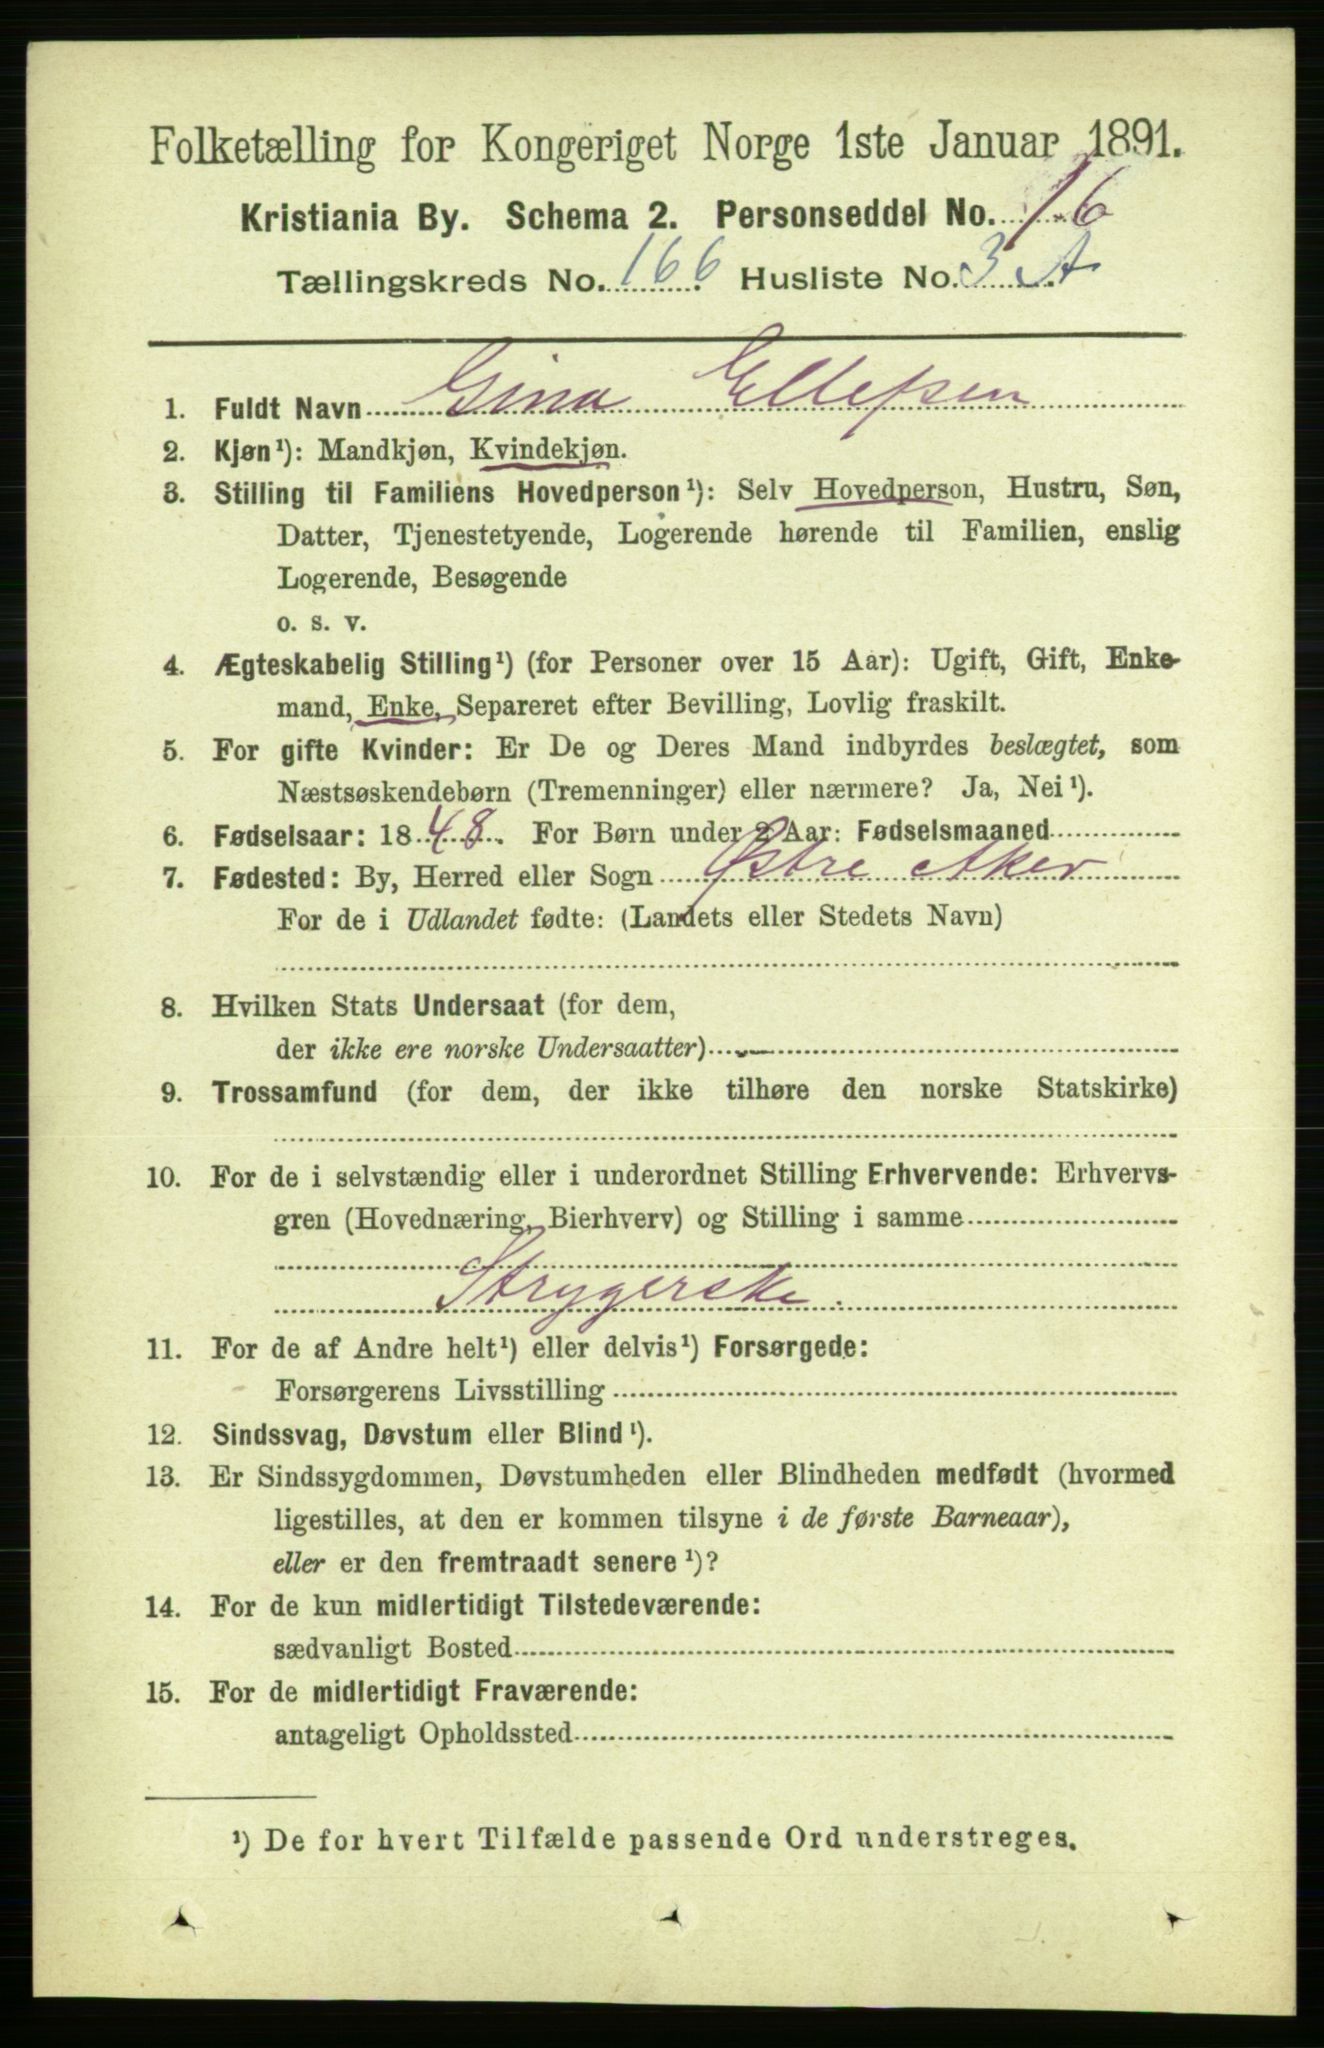 Folketælling for Kongeriget Norge 1ste Januar 1891.
Kristiania By. Schema 2. Personseddel No. 16
Tællingskreds No. 166. Husliste No. 3 A
1. Fuldt Navn Gina Ellefsen
2. Kjøn¹): Mandkjøn, Kvindekjøn.
3. Stilling til Familiens Hovedperson¹): Selv Hovedperson, Hustru, Søn,
Datter, Tjenestetyende, Logerende hørende til Familien, enslig
Logerende, Besøgende
o. s. v.
4. Ægteskabelig Stilling¹) (for Personer over 15 Aar): Ugift, Gift, Enke-
mand, Enke, Separeret efter Bevilling, Lovlig fraskilt.
5. For gifte Kvinder: Er De og Deres Mand indbyrdes beslægtet, som
Næstsøskendebørn (Tremenninger) eller nærmere? Ja, Nei¹).
6. Fødselsaar: 1848. For Børn under 2 Aar: Fødselsmaaned
7. Fødested: By, Herred eller Sogn Østre Aker
For de i Udlandet fødte: (Landets eller Stedets Navn)
8. Hvilken Stats Undersaat (for dem,
der ikke ere norske Undersaatter)
9. Trossamfund (for dem, der ikke tilhøre den norske Statskirke)
10. For de i selvstændig eller i underordnet Stilling Erhvervende: Erhvervs-
gren (Hovednæring, Bierhverv) og Stilling i samme
Strygerske.
11. For de af Andre helt¹) eller delvis¹) Forsørgede:
Forsørgerens Livsstilling
12. Sindssvag, Døvstum eller Blind¹).
13. Er Sindssygdommen, Døvstumheden eller Blindheden medfødt (hvormed
ligestilles, at den er kommen tilsyne i de første Barneaar),
eller er den fremtraadt senere¹)?
14. For de kun midlertidigt Tilstedeværende:
sædvanligt Bosted
15. For de midlertidigt Fraværende:
antageligt Opholdssted
¹) De for hvert Tilfælde passende Ord understreges.